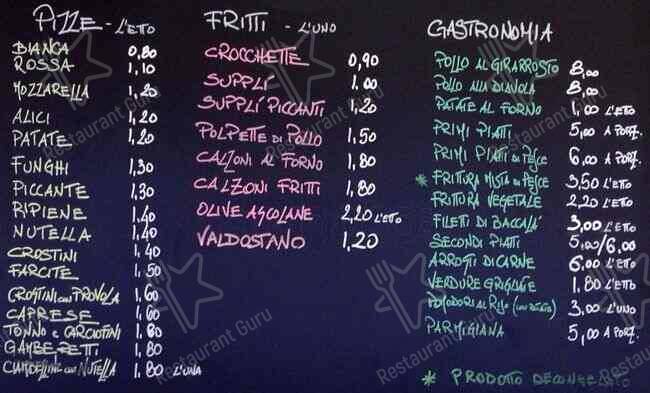 PIZZE - L'ETTO
BIANCA 0,80
ROSSA 1,10
MOZZARELLA 1,20
ALICI 1,20
PATATE 1,20
FUNGHI 1,30
PICCANTE 1,30
RIPIENE 1,40
NUTELLA 1,40
CROSTINI 1,40
FARCITE 1,50
CROSTINI CON PROVOLA 1,60
CAPRESE 1,60
TONNO E CARCIOFINI 1,80
GAMBERETTI 1,80
CIAMBELLINE CON NUTELLA 1,80 L'UNA
FRITTI - L'UNO
CROCCHETTE 0,90
SUPPLÍ 1.00
SUPPLÍ PICCANTI 1,20
POLPETTE DI POLLO 1,50
CALZONI AL FORNO 1,80
CALZONI FRITTI 1,80
OLIVE ASCOLANE 2,20 L'ETTO
VALDOSTANO 1,20
GASTRONOMIA
POLLO AL GIRARROSTO 8,00
POLLO ALLA DIAVOLA 8,00
PATATE AL FORNO 1,00 L'ETTO
PRIMI PIATTI 5,00 A PORZ.
PRIMI PIATTI DI PESCE 6,00 A PORZ.
* FRITTURA MISTA DI PESCE 3,50 L'ETTO
FRITTURA VEGETALE 2,20 L'ETTO
FILETTI DI BACCALA' 3,00 L'ETTO
SECONDI PIATTI 5,00/6,00
ARROSTI DI CARNE 6,00 L'ETTO
VERDURE GRIGLIATE 1,80 L'ETTO
POMODORI AL RISO (CON PATATE) 3,00 L'UNO
PARMIGIANA 5,00 A PORZ.
* PRODOTTO DECONGELATO
Restaurant Guru
Restaurant Guru
Restaurant Guru
Restaurant Guru
Restaurant Guru
Restaurant Guru